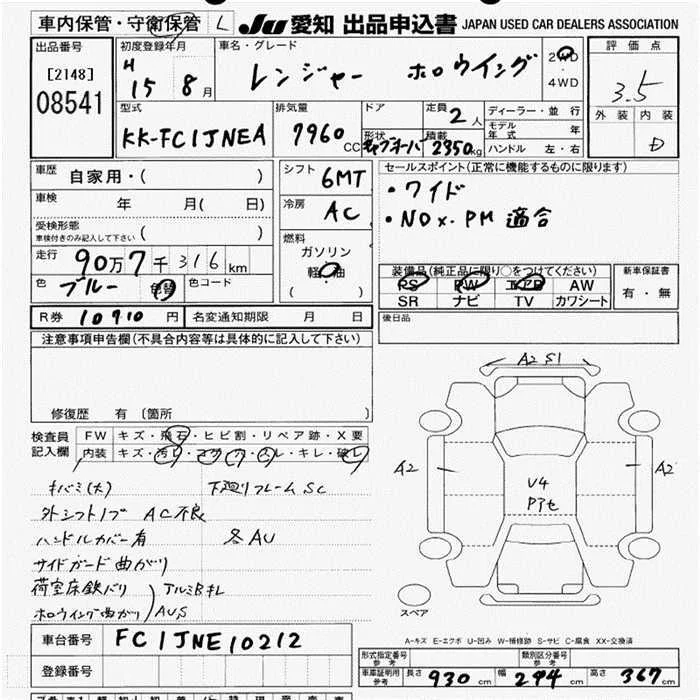 車内保管・守衛保管 L JU 愛知 出品申込書 JAPAN USED CAR DEALERS ASSOCIATION
出品番号 [2148] 08541
初度登録年月 H 15 8月
車名・グレード レンジャー ホロウイング
2WD・4WD
評価点 3.5
外装 内装 D
型式 KK-FC1JNEA
排気量 7960 CC
ドア 形状
定員 2人
積載 2350kg
ディーラー・並行
モデル年式 年
ハンドル 左・右
車歴 自家用・( )
車検 年 月( 日)
受検形態 車検付きのみ記入して下さい ( )
走行 90万7千316km
色 ブルー 色替 色コード
シフト 6MT
冷房 AC
燃料 ガソリン 軽・油 ( )
セールスポイント(正常に機能するものに限ります)
・ワイド
・NOx・PM 適合
装備品(純正品に限り○をつけてください)
PS PW エアB AW
SR ナビ TV カワシート
新車保証書 有・無
R券 10910 円 名変通知期限 月 日
後日品
注意事項申告欄(不具合内容等は具体的に記入して下さい)
修復歴 有 〔箇所 〕
検査員記入欄
FW キズ・飛石・ヒビ割・リペア跡・X要
内装 キズ・汚レ・コゲ・穴・スレ・キレ・破レ
キバミ(大) 下廻りフレームSC
外シフトノブ AC不良
ハンドルカバー有 各AU
サイドガード曲がり
荷室床鉄バリ アルミBキレ
ホロウイング曲がり AUS
A2 S1
A2 A2
U4
Pアセ
スペア
A-キズ E-エクボ U-凹み W-補修跡 S-サビ C-腐食 XX-交換済
車台番号 FC1JNE10212
登録番号
形式指定番号 参考 類別区分番号 参考
車庫証明用 参考 長さ 930 cm 幅 244 cm 高さ 367 cm